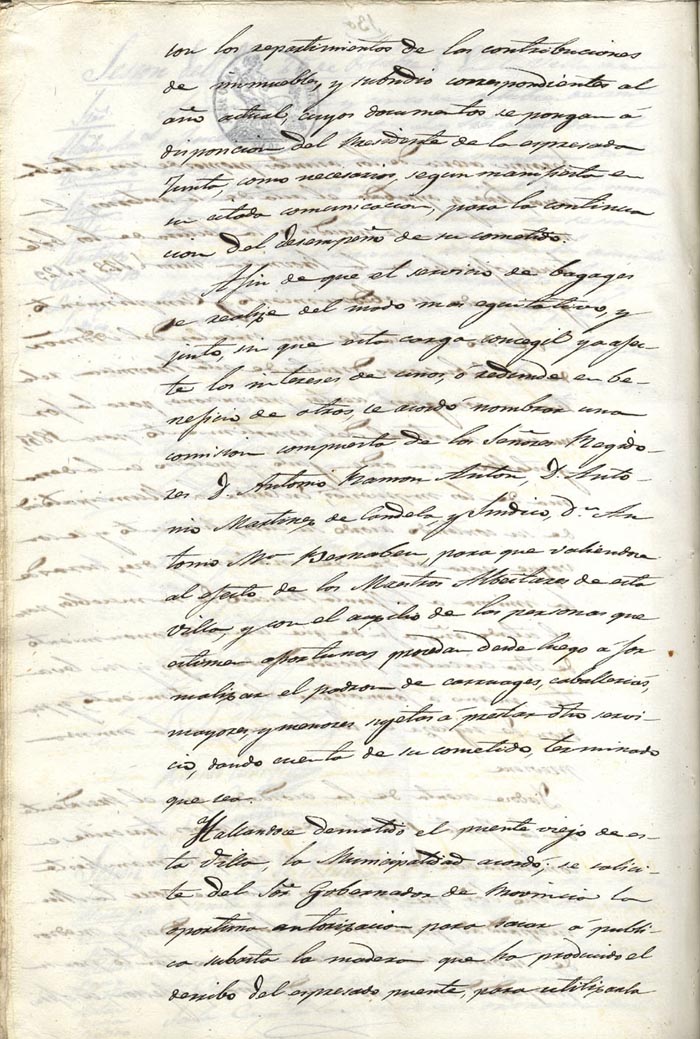 con los repartimientos de las contribuciones
de inmuebles, y subsidio correspondientes al
año actual, cuyos documentos se pongan á
disposicion del Presidente de la espresada
Junta, como necesarios, segun manifiesta en
su citada comunicacion, para la continua
cion del desempeño de su cometido.
Afin de que el servicio de bagages
se realize del modo mas equitativo, y
justo, sin que esta carga concegil ya afec
te los intereses de unos, ó redunde en be-
neficio de otros, se acordó nombrar una
comision compuesta de los Señores Regido-
res D. Antonio Ramon Anton, D. Anto-
nio Martinez de Candela, y Sindico, Dn. An
tonio Ma. Bernabeu, para que valiendose
al efecto de los Maestros Albeitares de esta
Villa, y con el auxilio de las personas que
estimen oportunas procedan desde luego á for
malizar el padron de carruages, caballerias,
mayores, y menores sujetos á prestar dho servi-
cio, dando cuenta de su cometido, terminado
que sea.
Hallandose demolido el puente viejo de es-
ta Villa, la Municipalidad acordó, se solici-
te del Sor. Gobernador de Provincia la
oportuna autorizacion para sacar á publi-
ca subasta la madera que ha producido el
derribo del espresado puente, para utilizarla